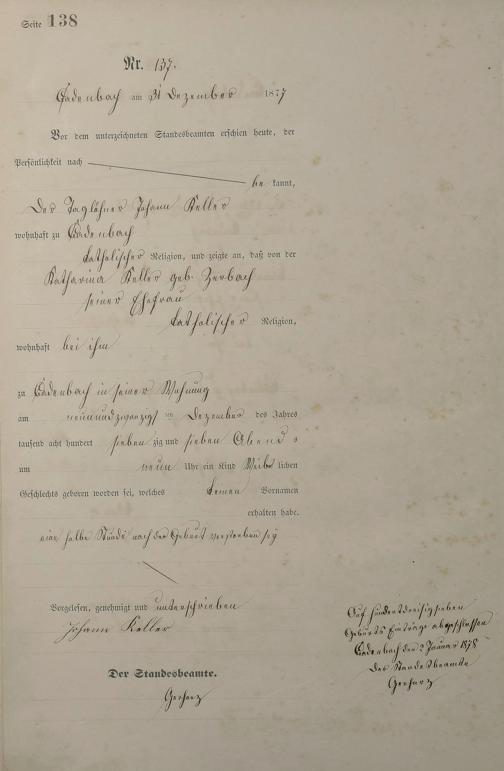 Seite 138
Nr. 137.
Cadenbach am 31 Dezember 1877
Vor dem unterzeichneten Standesbeamten erschien heute, der
Persönlichkeit nach
be kannt,
Der Taglöhner Johann Keller
wohnhaft zu Cadenbach
katholischer Religion, und zeigte an, daß von der
Katharina Keller geb. Zerbach
seiner Ehefrau
katholischer Religion,
wohnhaft bei ihm
zu Cadenbach in seiner Wohnung
am neunundzwanzigsten Dezember des Jahres
tausend acht hundert sieben zig und sieben Abends
um neun Uhr ein Kind Weib lichen
Geschlechts geboren worden sei, welches keinen Vornamen
erhalten habe.
eine halbe Stunde nach der Geburt verstorben sey
Vorgelesen, genehmigt und unterschrieben
Johann Keller
Der Standesbeamte.
Gerharz
Auf hundertdreißigsieben
Geburts Einträge abgeschlossen
Cadenbach den 2 Januar 1878
Der Standesbeamte
Gerharz